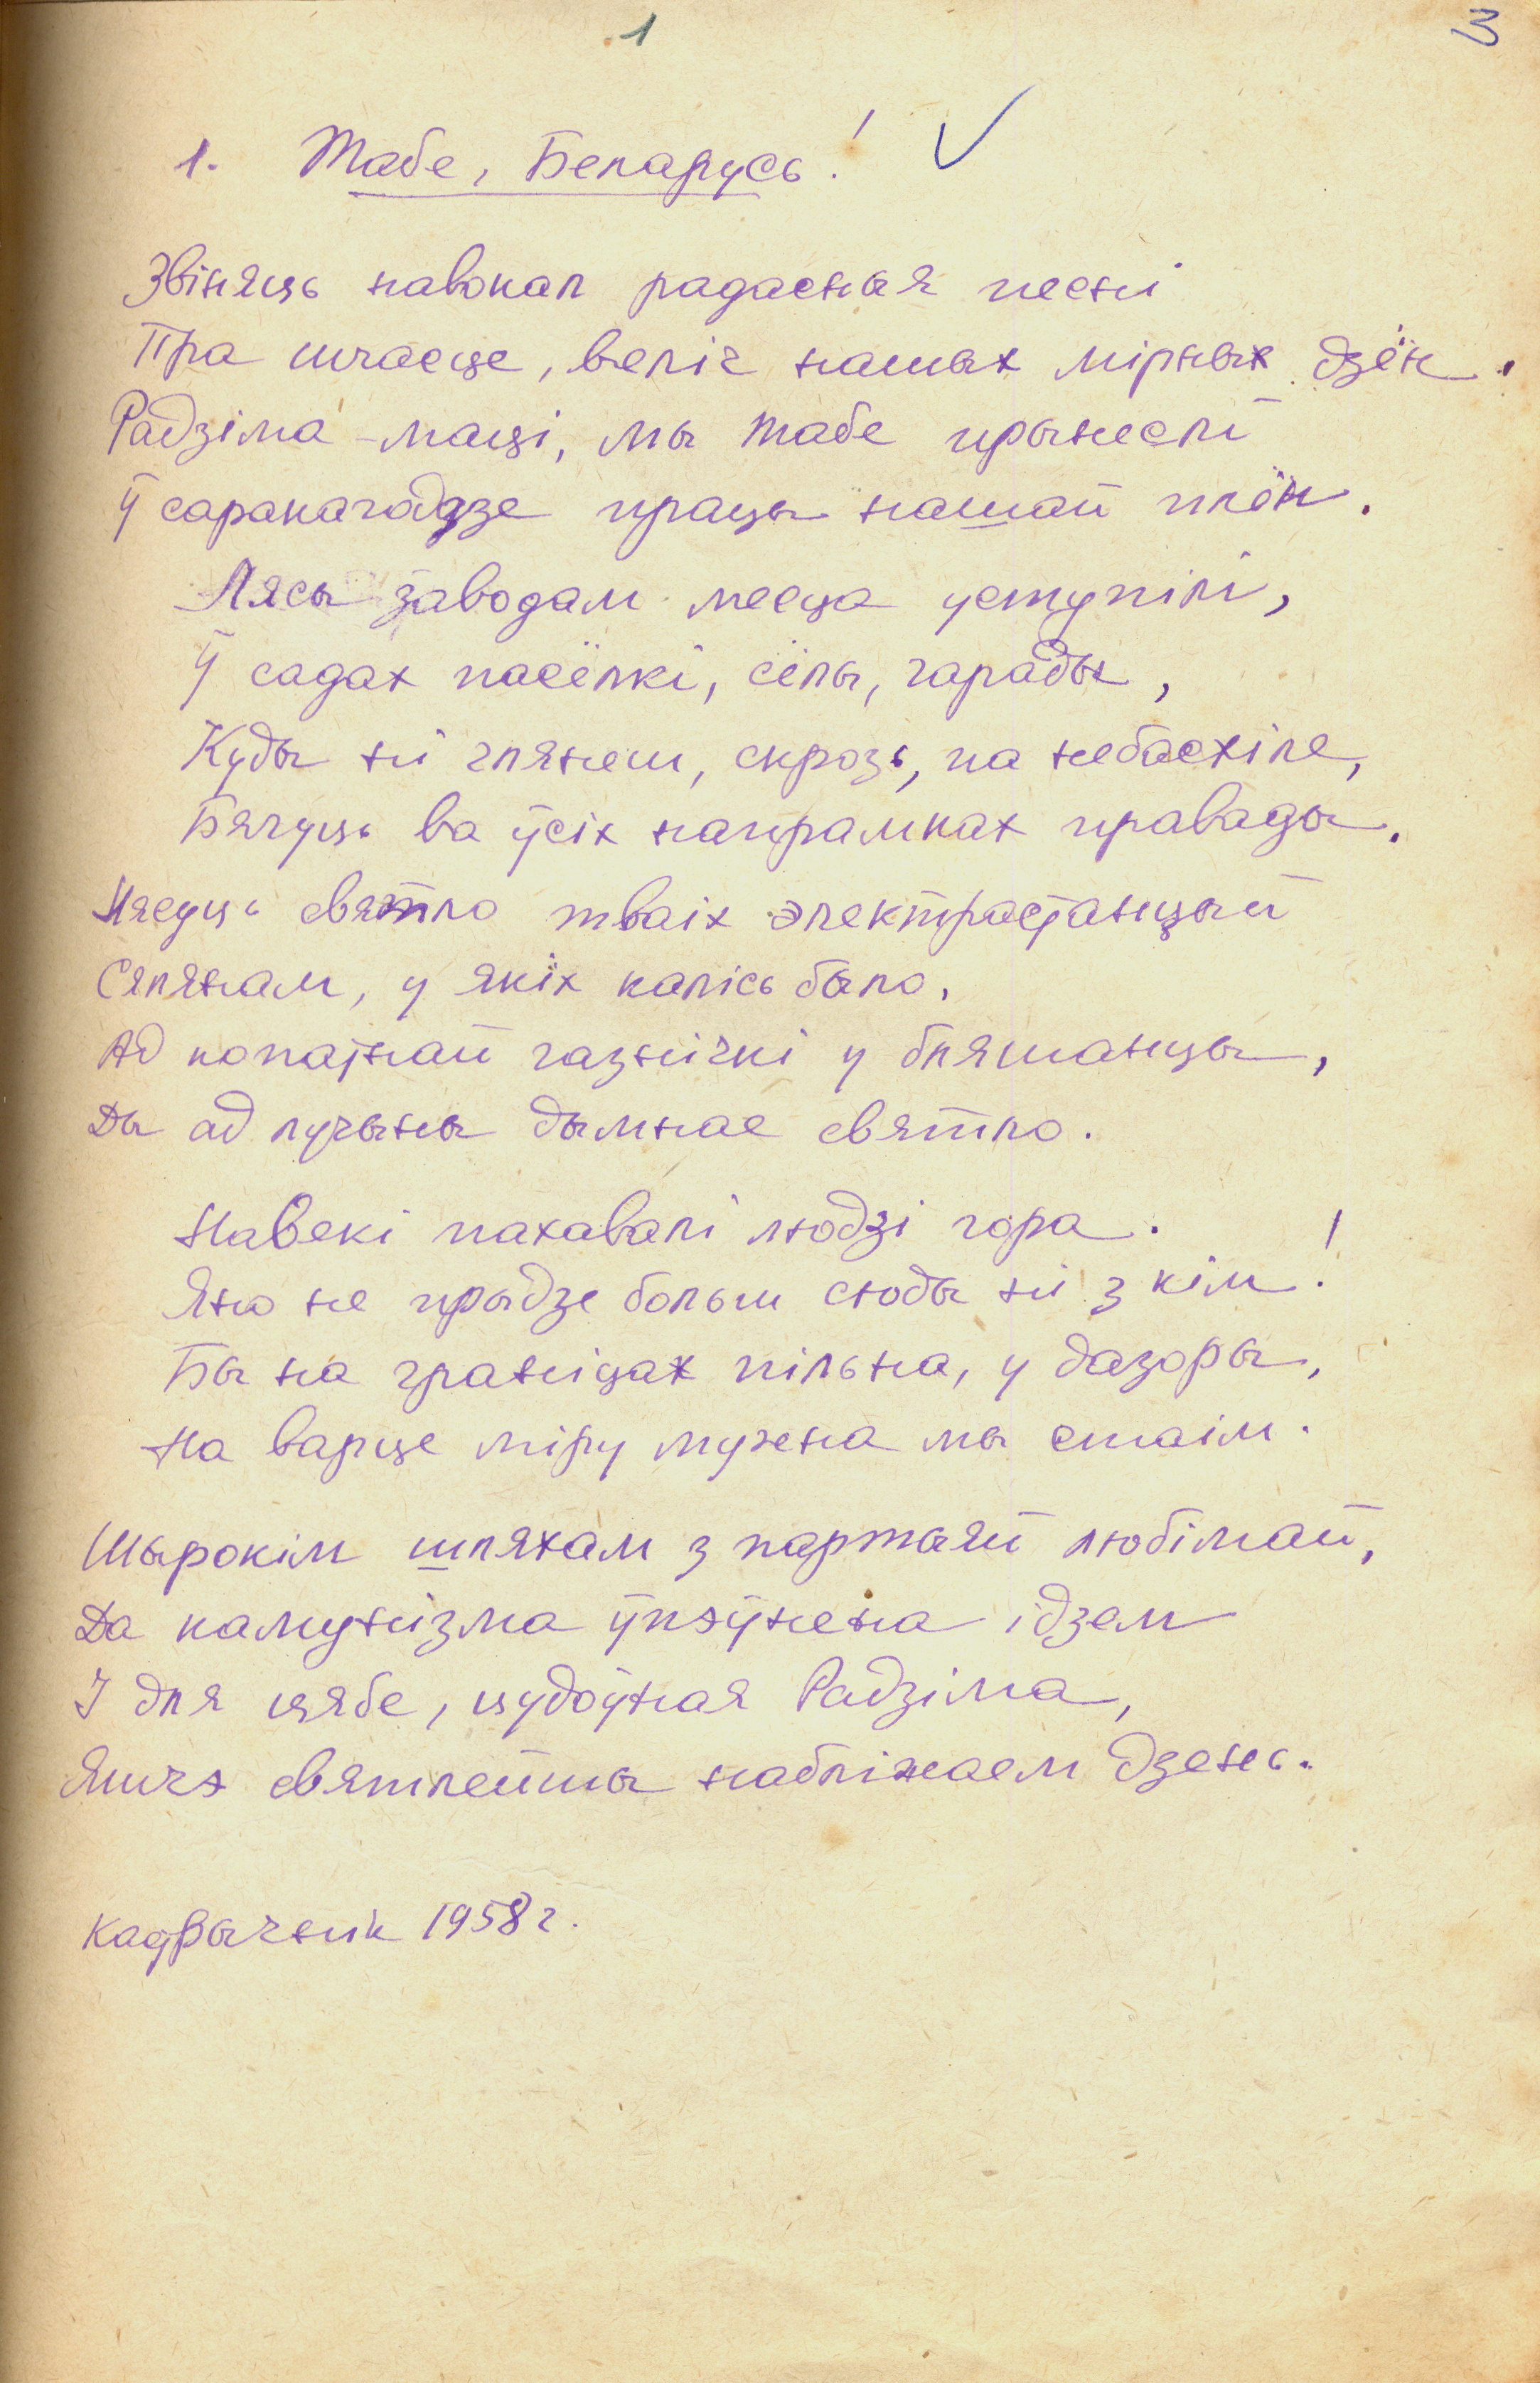 1
3
1. Табе, Беларусь!
Звіняць навокал радасныя песні
Пра шчасце, веліч нашых мірных дзён.
Радзіма-маці, мы табе прынеслі
Ў саракагоддзе працы нашай плён.
Лясы заводам месца уступілі,
Ў садах пасёлкі, сёлы, гарады,
Куды ні глянеш, скрозь, па небасхіле,
Бягуць ва ўсіх напрамках правады.
Нясуць святло тваіх электрастанцый
Сялянам, у якіх калісь было,
Ад копатнай газнічкі у бляшанцы,
Ды ад лучыны дымнае святло.
Навекі пахавалі людзі гора.
Яно не прыдзе больш сюды ні з кім!
Бы на граніцах пільна, у дазоры,
На варце міру мужна мы стаім.
Шырокім шляхам з партыяй любімай,
Да камунізма ўпэўнена ідзем
І для цябе, цудоўная Радзіма,
Яшчэ святлейшы набліжаем дзень.
Кастрычнік 1958 г.